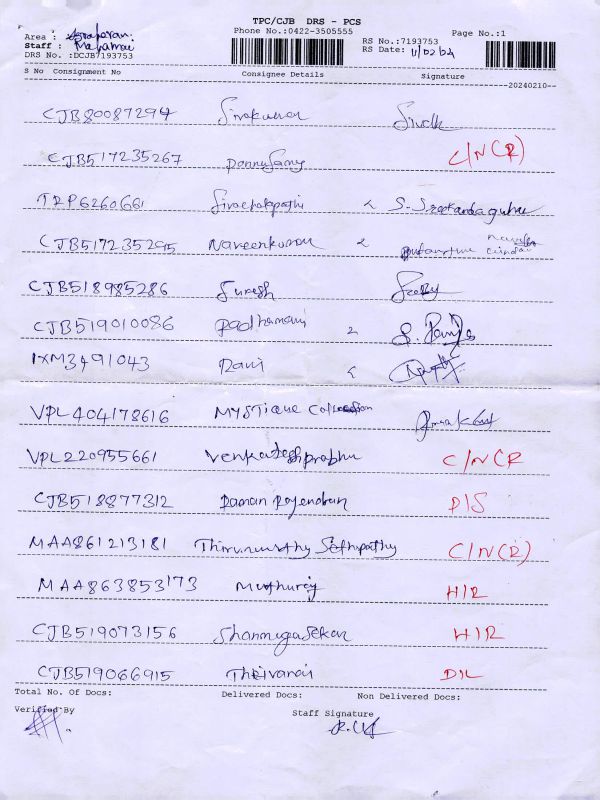 TPC/CJB DRS - PCS
Area :
Phone No.:0422-3505555
Page No.:1
Staff :
RS No.:7193753
DRS No. :DCJB7193753
RS Date: 11/02/24
S No Consignment No Consignee Details Signature
20240210
CJB80087294 Sivakumar
CJB517235267 Ponnusamy C/N(R)
TRP6260661
CJB517235295 Naveenkumar
CJB518985286 Suresh
CJB519010086 Padhamani
IXM3491043 Ravi
VPL404178616 Mystique Collection
VPL220955661 Venkateshprabhu C/N(R
CJB518877312 Raman Rajendran D/S
MAA861213181 Thirumurthy Sethupathy C/N(R)
MAA863853173 Muthuraj H/R
CJB519073156 Shanmugasekar H/R
CJB519066915 D/L
Total No. Of Docs: Delivered Docs: Non Delivered Docs:
Verified By Staff Signature